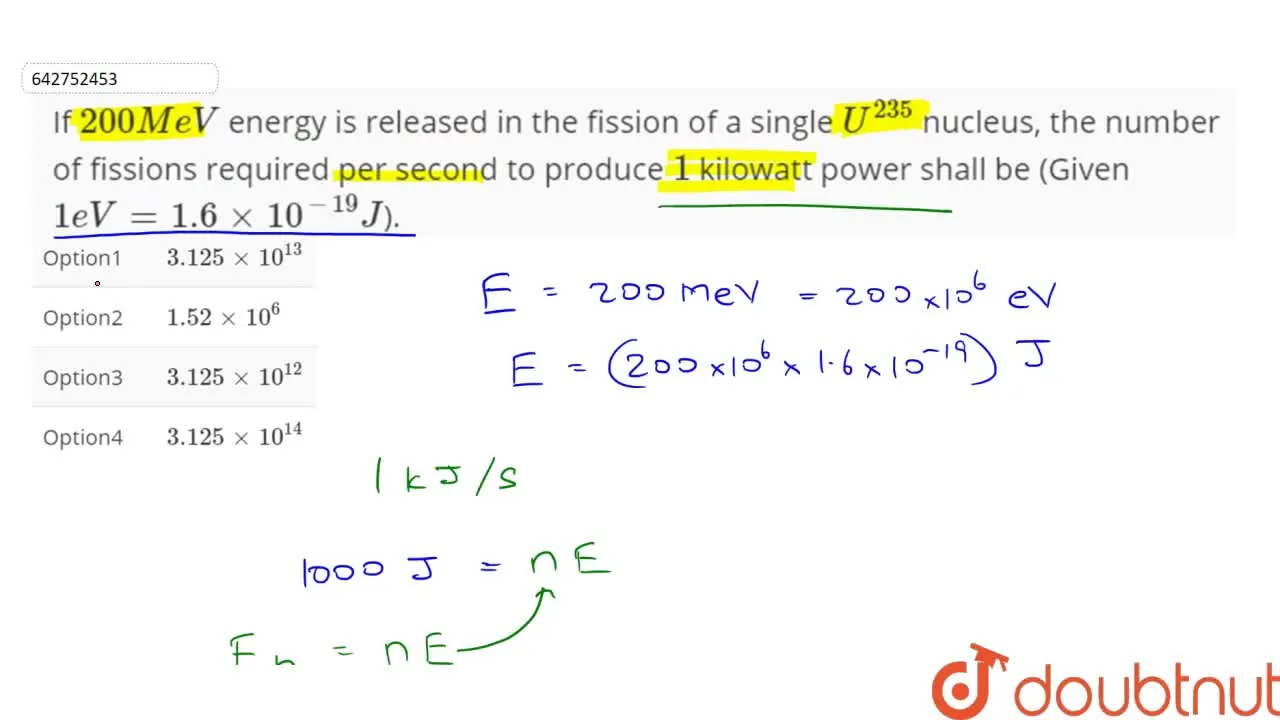 642752453
If 200MeV energy is released in the fission of a single U^235 nucleus, the number
of fissions required per second to produce 1 kilowatt power shall be (Given
1eV = 1.6 × 10^-19 J).
Option1 3.125 × 10^13
Option2 1.52 × 10^6
Option3 3.125 × 10^12
Option4 3.125 × 10^14
E = 200 MeV = 200 × 10^6 eV
E = (200 × 10^6 × 1.6 × 10^-19) J
1 kJ/s
1000 J = nE
En = nE
doubtnut